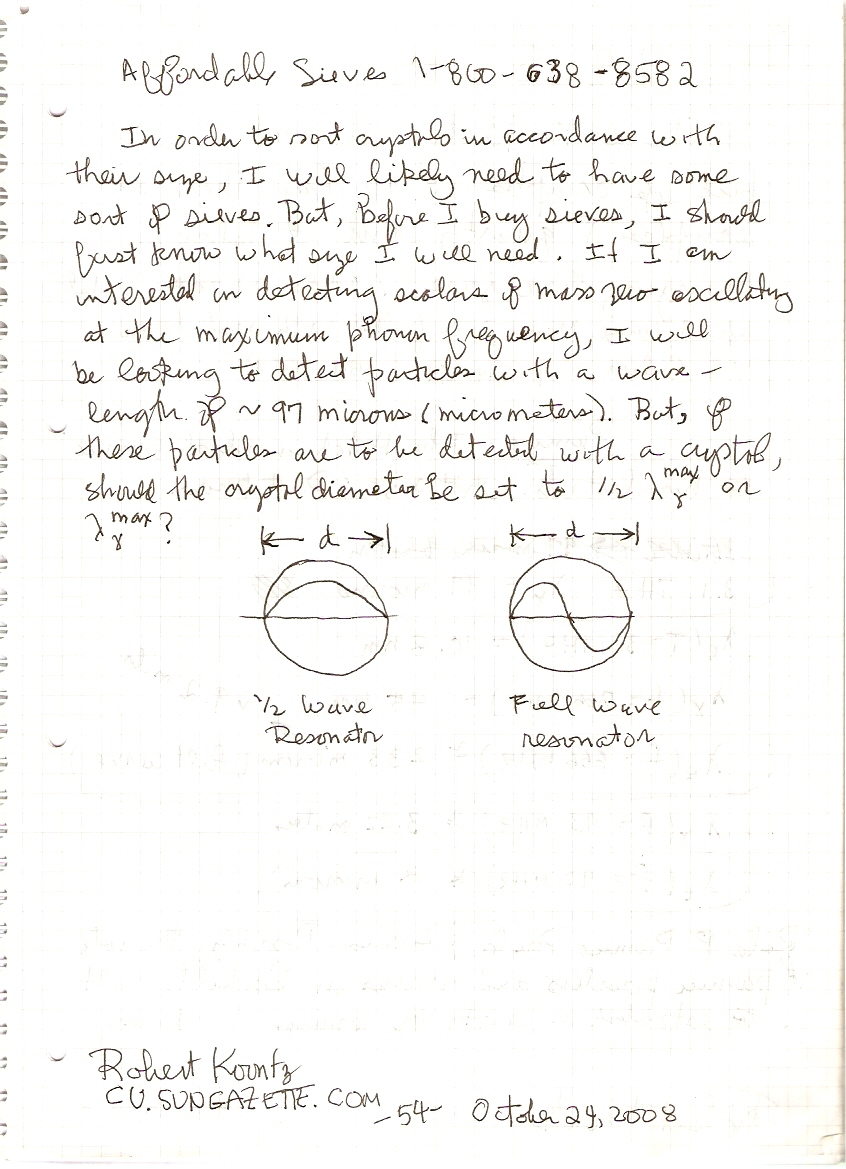 Affordable Sieves 1-800-638-8582
In order to sort crystals in accordance with
their size, I will likely need to have some
sort of sieves. But, before I buy sieves, I should
first know what size I will need. If I am
interested in detecting scalars of mass zero oscillating
at the maximum phonon frequency, I will
be looking to detect particles with a wave-
length of ~ 97 microns (micrometers). But, if
these particles are to be detected with a crystal,
should the crystal diameter be set to 1/2 λγ^max or
λγ^max?
d d
1/2 Wave Full Wave
Resonator resonator
Robert Koontz
CU.SUNGAZETTE.COM
-54- October 29, 2008